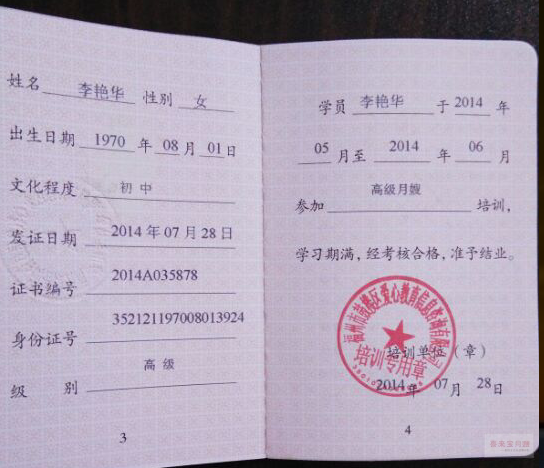 姓名 李艳华 性别 女
出生日期 1970 年 08 月 01 日
文化程度 初中
发证日期 2014 年 07 月 28 日
证书编号 2014A035878
身份证号 352121197008013924
级 别 高级
3
学员 李艳华 于 2014 年
05 月至 2014 年 06 月
参加 高级月嫂 培训,
学习期满, 经考核合格, 准予结业。
培训专用章
培训单位 (章)
2014年 07 月 28 日
4